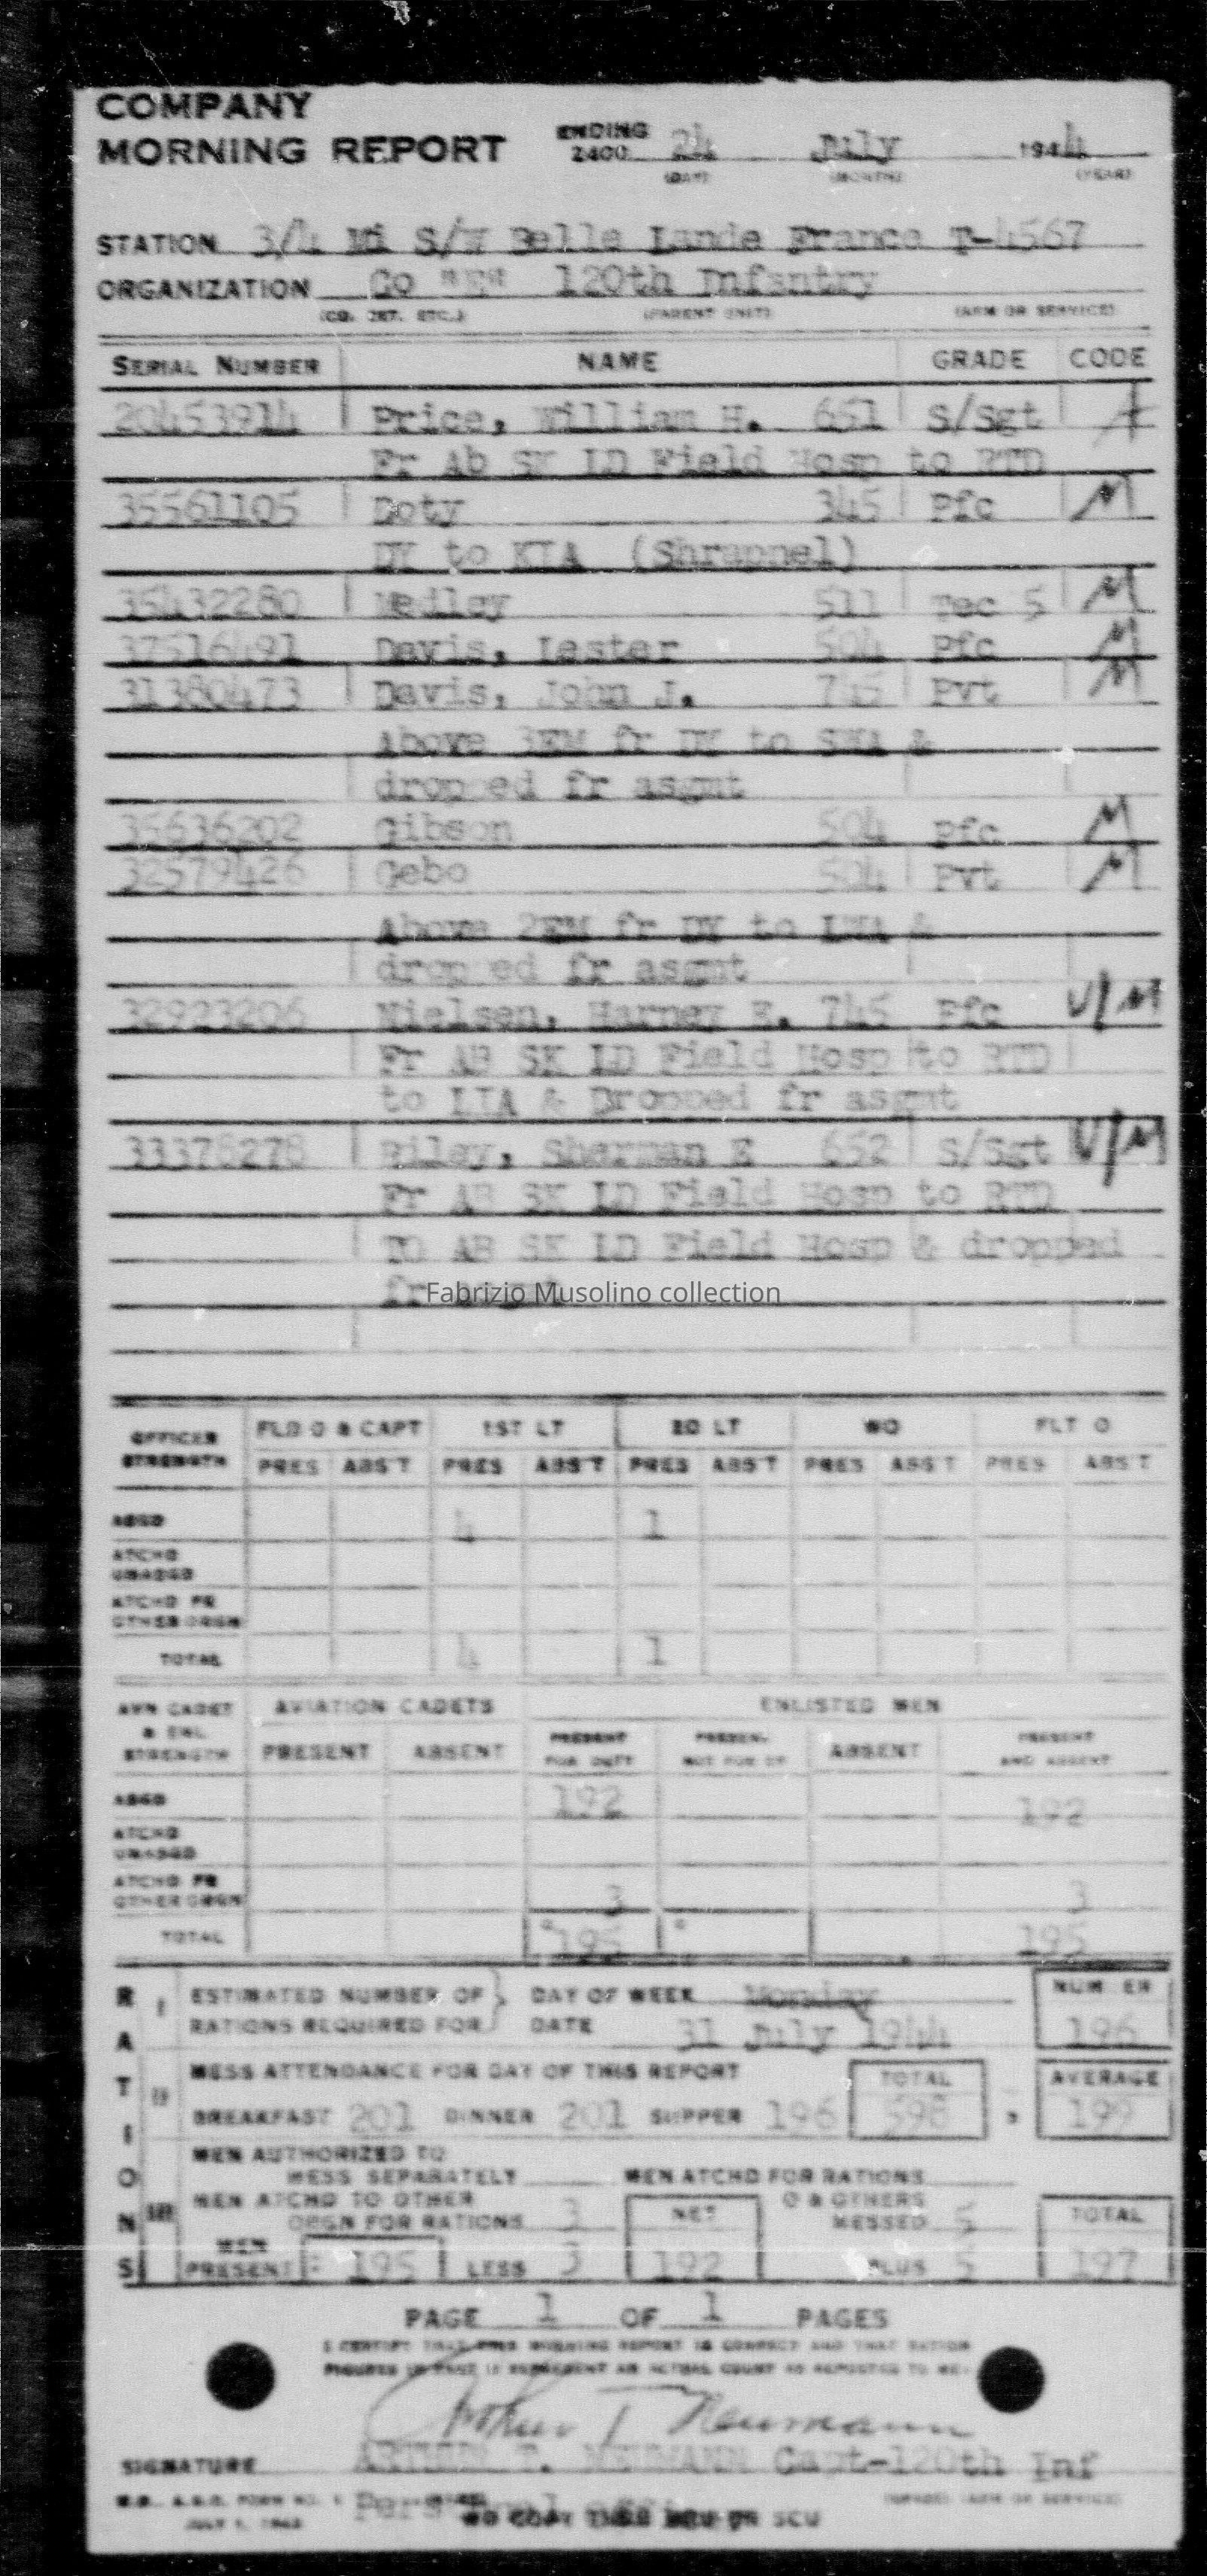 COMPANY
MORNING REPORT ENDING 2400 24 July 1944
(DAY) (MONTH) (YEAR)
STATION 3/4 Mi S/W Belle Lande France T-4567
ORGANIZATION Co 120th Infantry
(CO. DET. ETC.) (PARENT UNIT) (ARM OR SERVICE)
SERIAL NUMBER NAME GRADE CODE
20453914 Price, William H. 651 S/Sgt
Fr Ab SK LD Field Hosp to RTD
35561105 Doty 345 Pfc M
DY to KIA (Shrapnel)
35432280 Medley 511 Tec 5 M
37516491 Davis, Lester 504 Pfc M
31380473 Davis, John J. 745 Pvt M
Above 3EM fr DY to SWA &
dropped fr asgmt
35636202 Gibson 504 Pfc M
32579426 Gebo 504 Pvt M
Above 2EM fr DY to LWA &
dropped fr asgmt
32923206 Nielsen, Harney E. 745 Pfc U/M
Fr AB SK LD Field Hosp to RTD
to LIA & Dropped fr asgmt
33378278 Riley, Sherman E 652 S/Sgt U/M
Fr AB SK LD Field Hosp to RTD
TO AB SK LD Field Hosp & dropped
fr
Fabrizio Musolino collection
OFFICER STRENGTH FLD O & CAPT 1ST LT 2D LT WO FLT O
PRES ABS'T PRES ABS'T PRES ABS'T PRES ABS'T PRES ABS'T
ASGD 4 1
ATCHD UNASGD
ATCHD FR OTHER ORGN
TOTAL 4 1
AVN CADET & ENL STRENGTH AVIATION CADETS ENLISTED MEN
PRESENT ABSENT PRESENT FOR DUTY PRESENT NOT FOR DY ABSENT PRESENT AND ABSENT
ASGD 192 192
ATCHD UNASGD
ATCHD FR OTHER ORGN 3 3
TOTAL 195 195
RATIONS
I ESTIMATED NUMBER OF RATIONS REQUIRED FOR DAY OF WEEK Monday NUMBER
DATE 31 July 1944 196
II MESS ATTENDANCE FOR DAY OF THIS REPORT TOTAL AVERAGE
BREAKFAST 201 DINNER 201 SUPPER 196 598 , 199
III MEN AUTHORIZED TO
MESS SEPARATELY MEN ATCHD FOR RATIONS
MEN ATCHD TO OTHER ORGN FOR RATIONS 3 NET O & OTHERS MESSED 5 TOTAL
MEN PRESENT: 195 LESS 3 192 PLUS 5 197
PAGE 1 OF 1 PAGES
I CERTIFY THAT THIS MORNING REPORT IS CORRECT AND THAT RATION
FIGURES IN PART II REPRESENT AN ACTUAL COUNT AS REPORTED TO ME.
Arthur T Neumann
SIGNATURE ARTHUR T. NEUMANN Capt-120th Inf
W.D., A.G.O. FORM NO. 1 (GRADE) (ARM OR SERVICE)
JULY 1, 1943